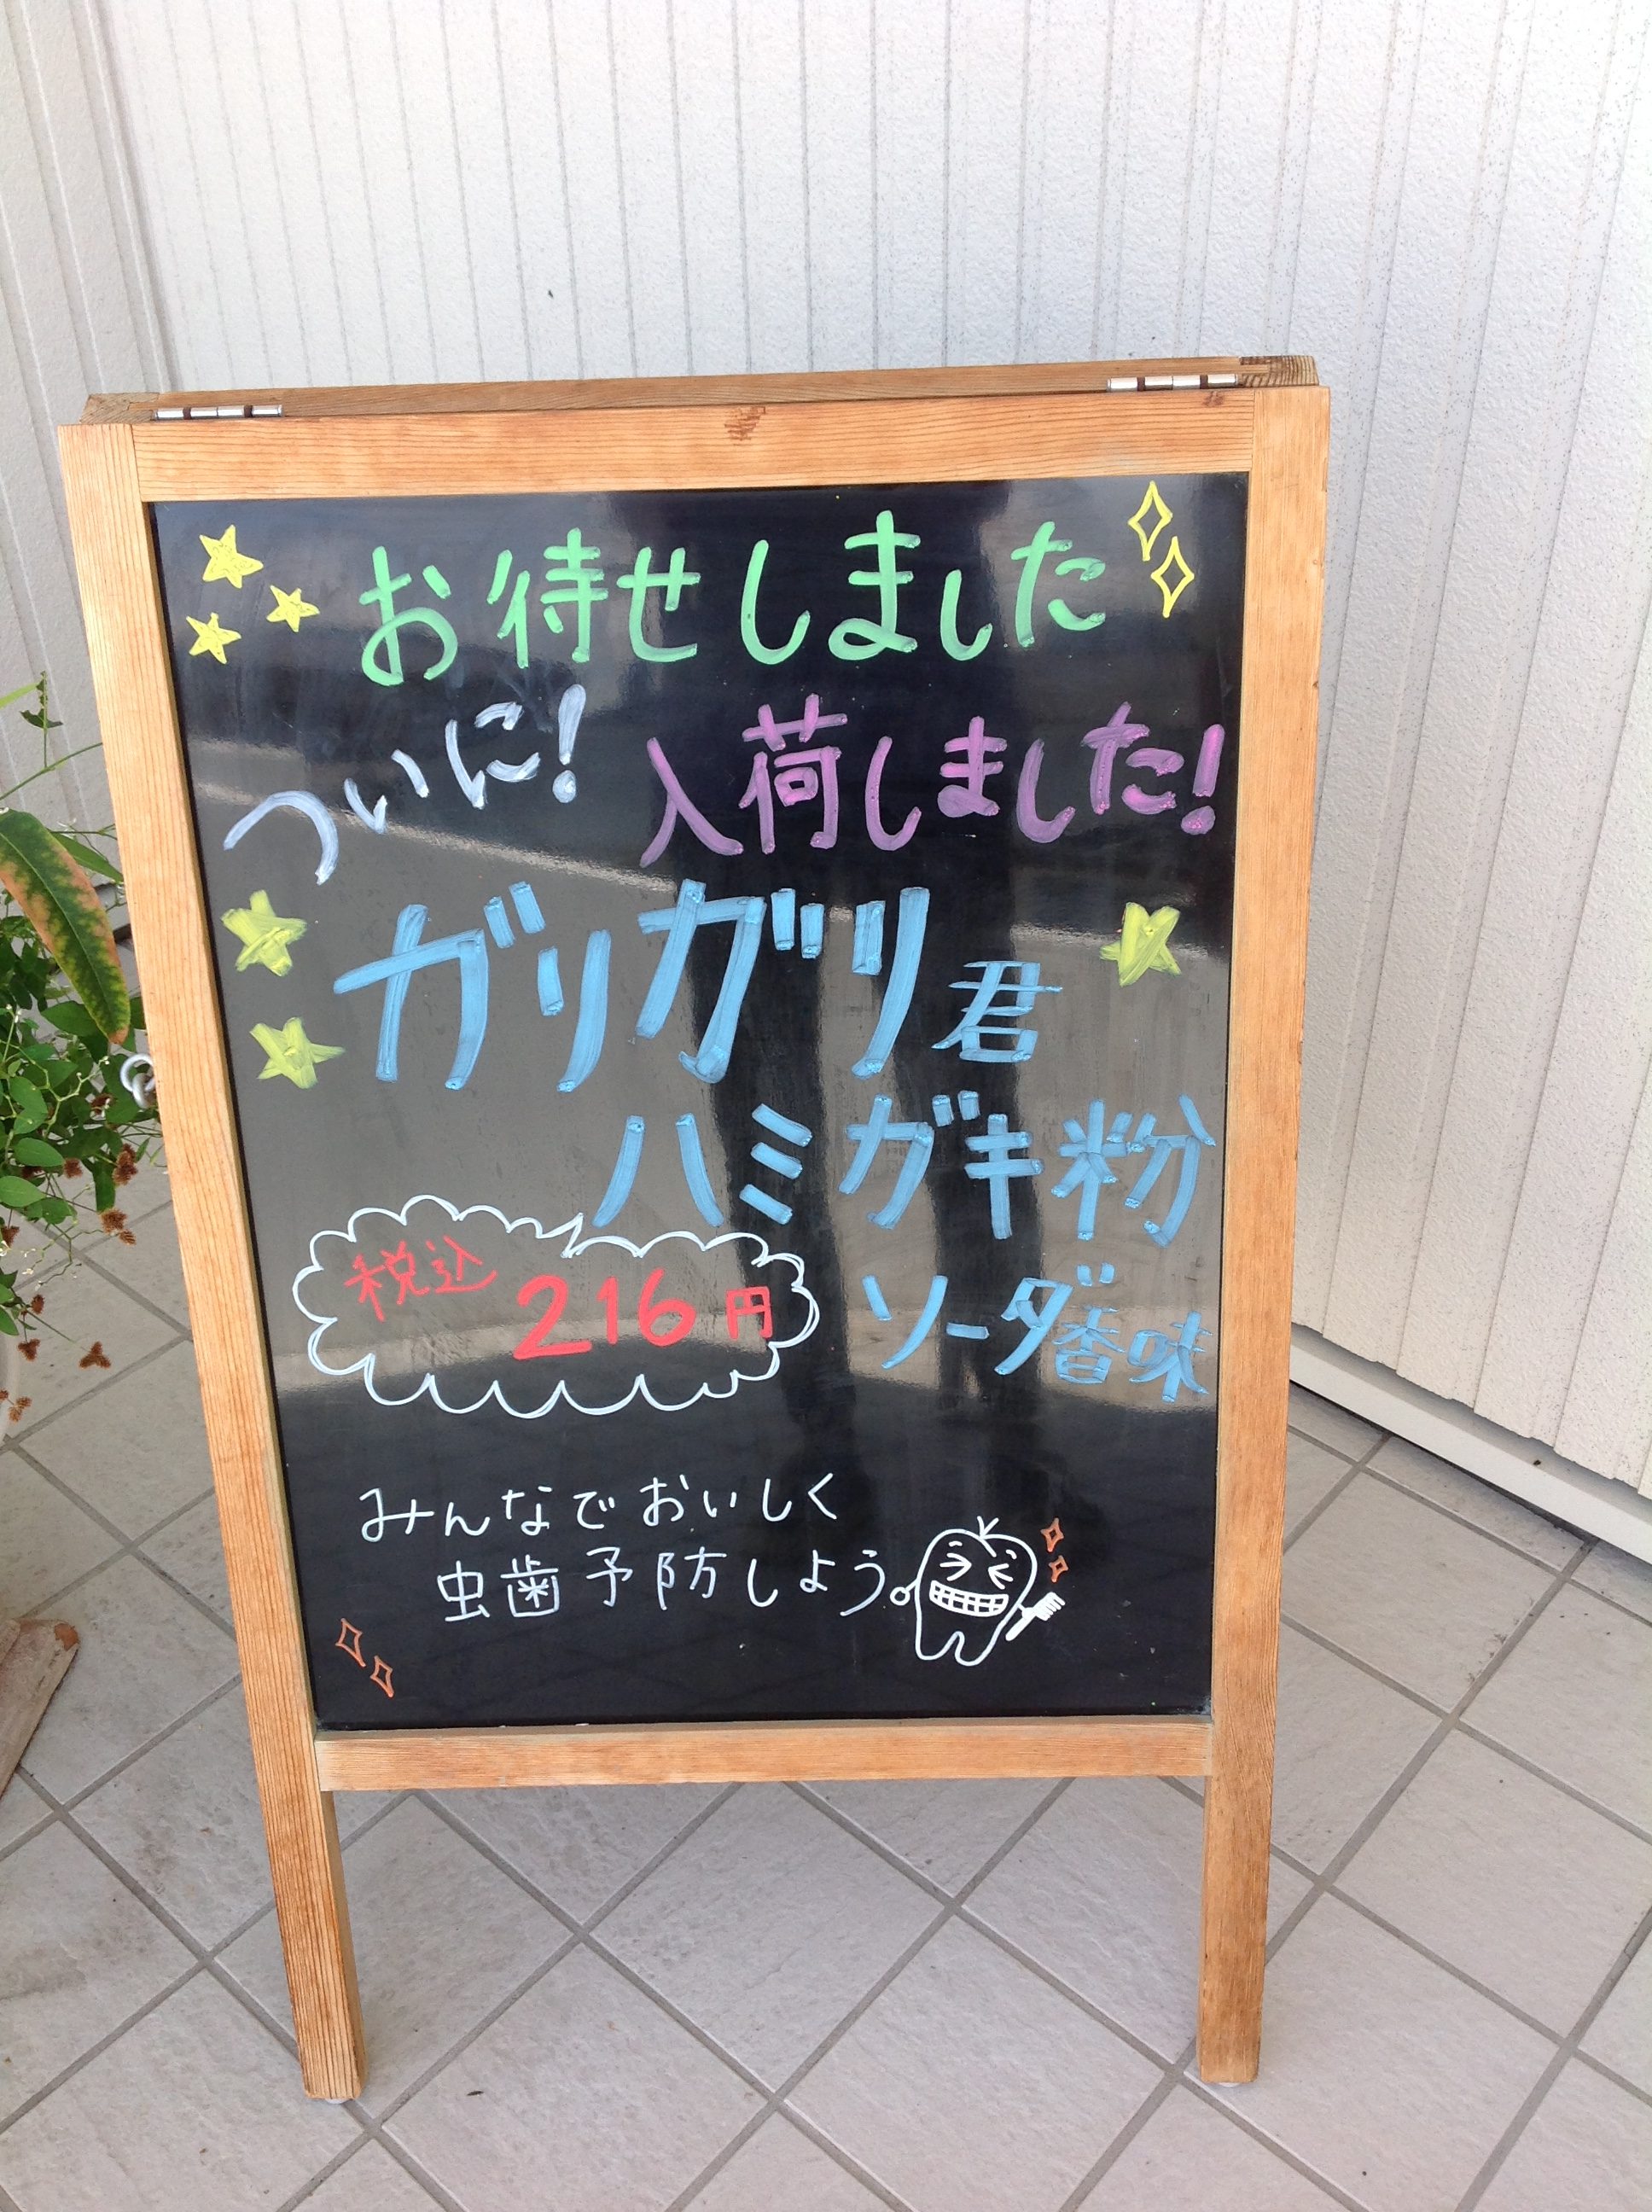 お待せしました
ついに! 入荷しました!
ガリガリ君
ハミガキ粉
ソーダ香味
税込 216円
みんなでおいしく
虫歯予防しよう